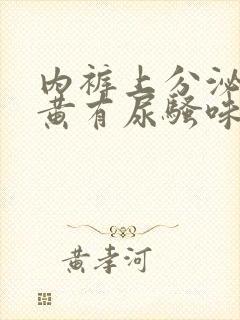 内裤上分泌
黄有尿骚味
黄孝河